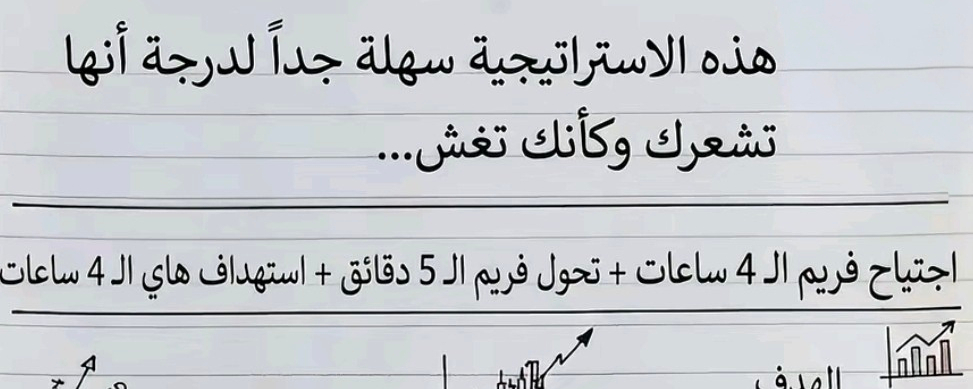 هذه الاستراتيجية سهلة جداً لدرجة أنها
تشعرك وكأنك تغش...
اجتياح فريم الـ 4 ساعات + تحول فريم الـ 5 دقائق + استهداف هاي الـ 4 ساعات
الهدف